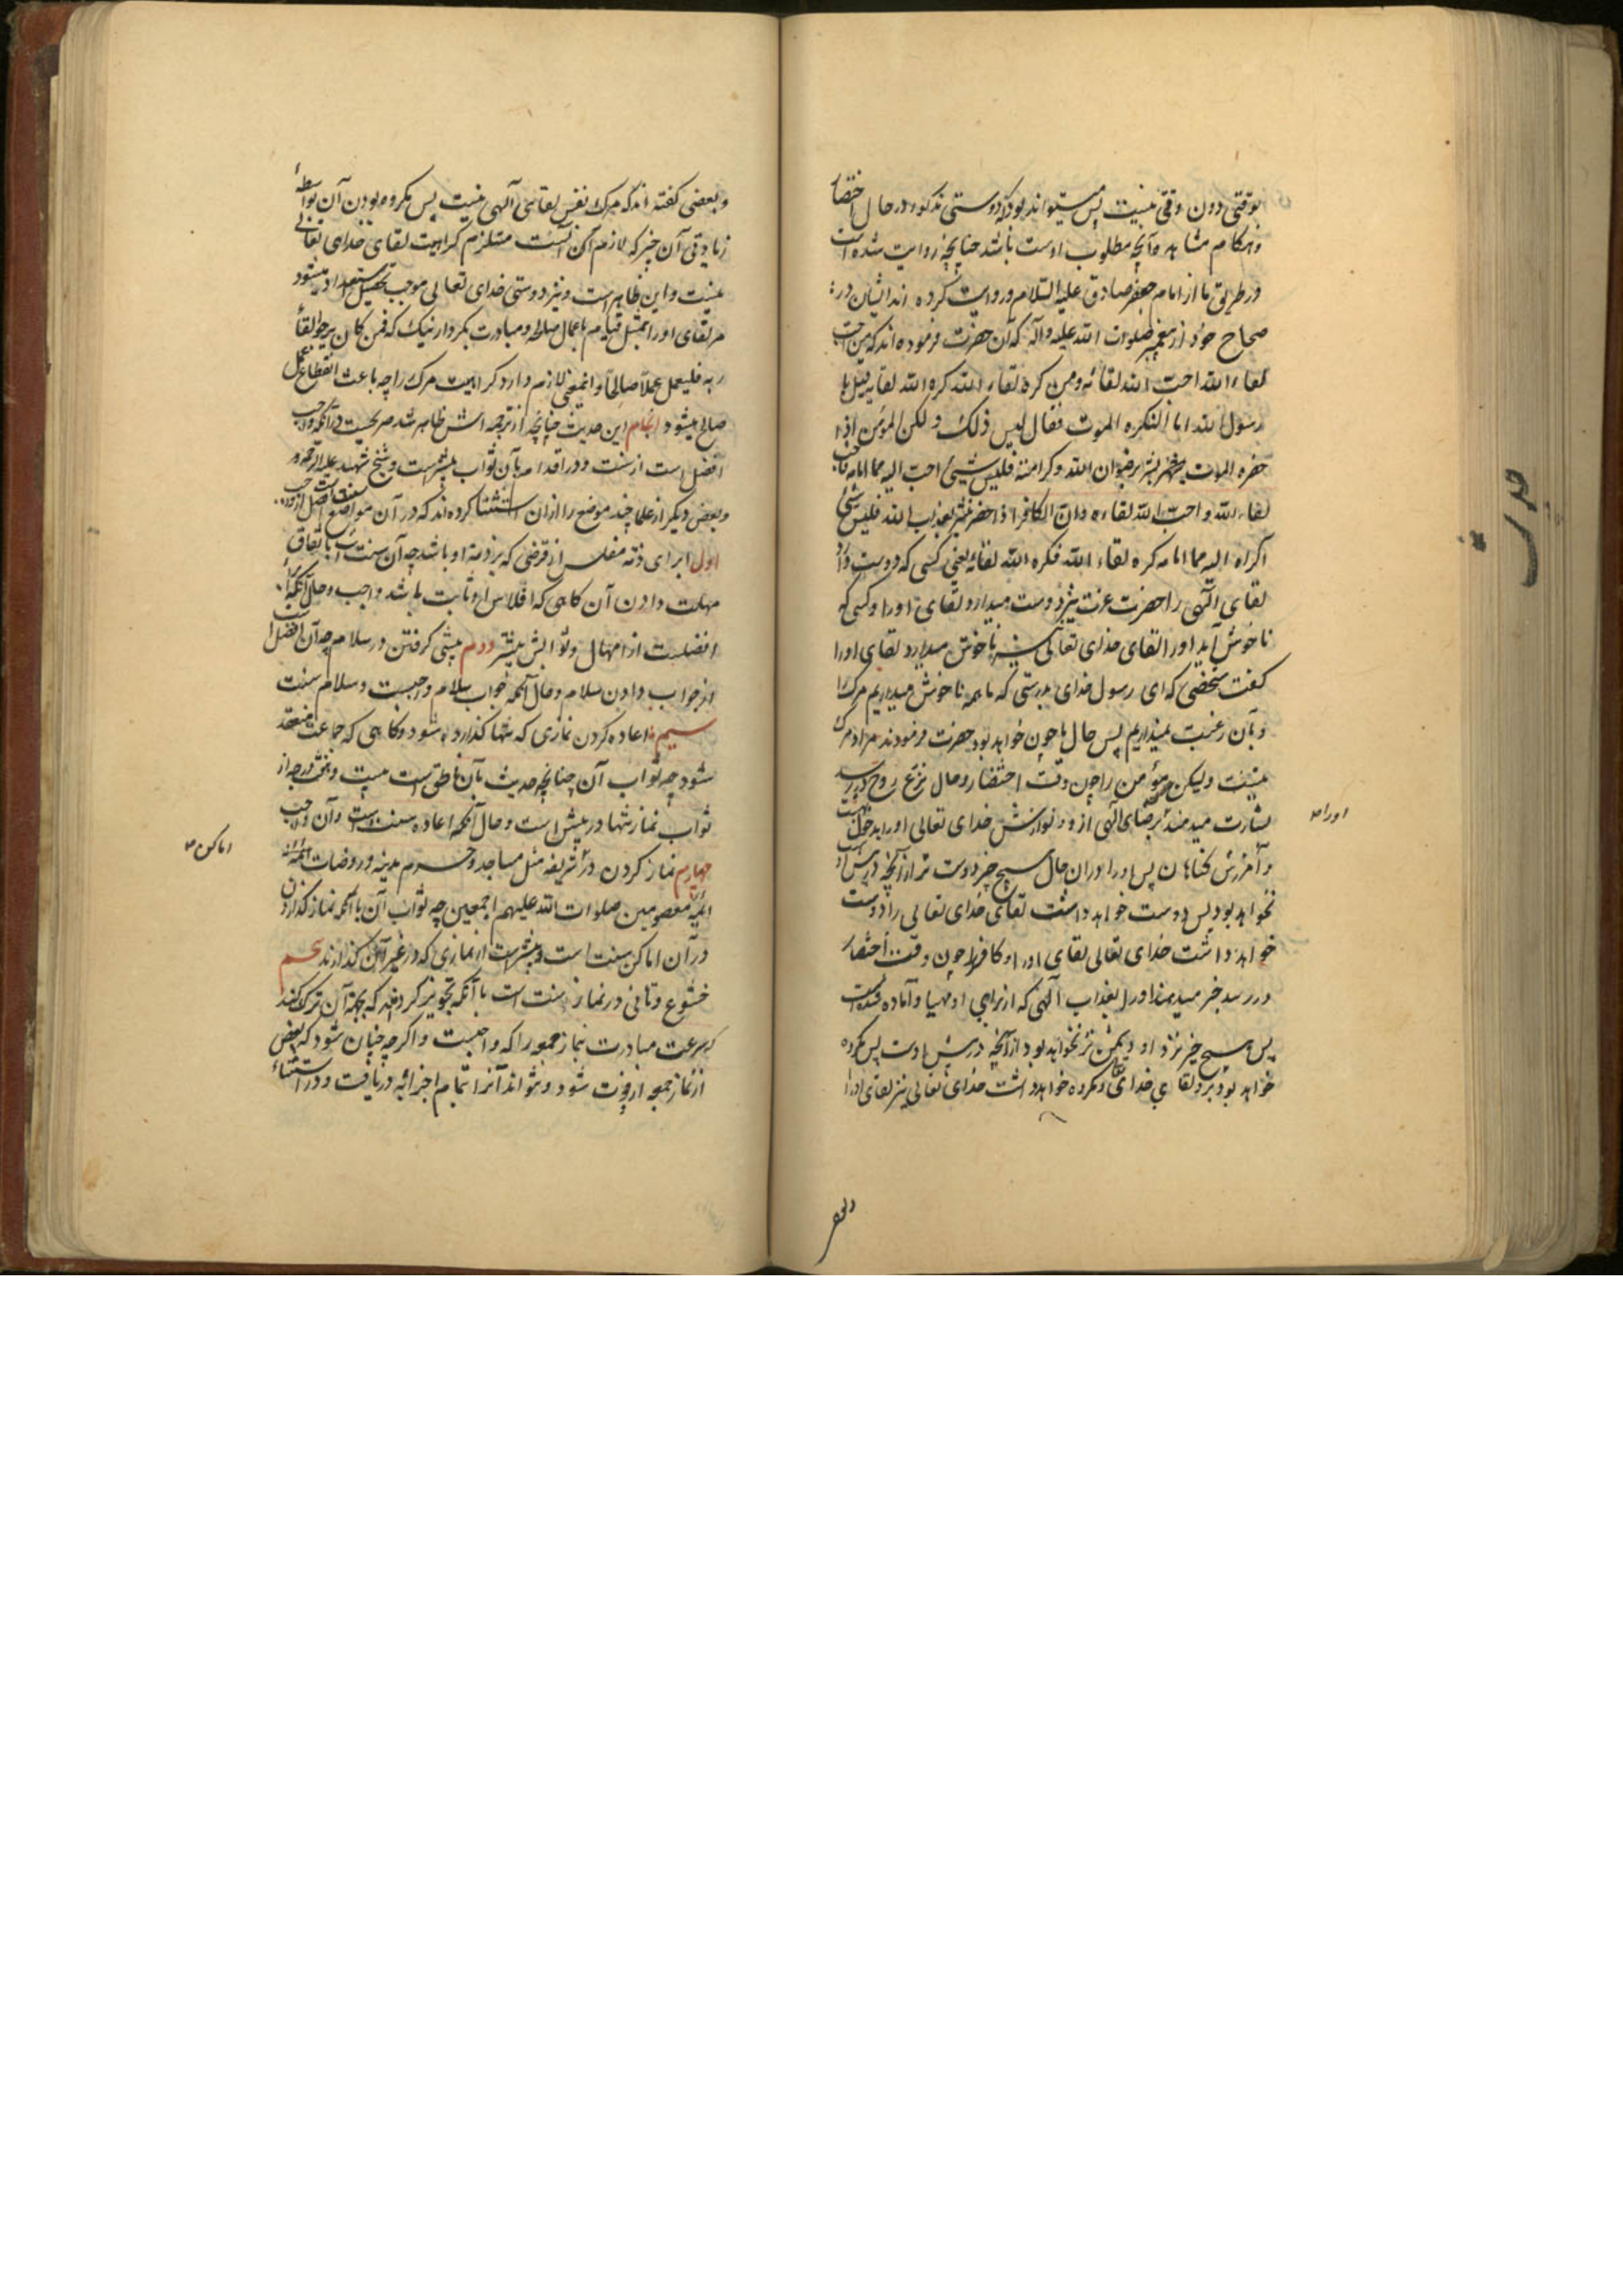 بوقتی دون وقتی نیست پس میتواند بود که دوستی مذکور در حال احتضار
و هنگام مشاهده آنچه مطلوب اوست باشد چنانچه روایت شده است
در طریق ما از امام جعفر صادق علیه السلام و روایت کرده اند ایشان در
صحاح خود از پیغمبر صلوات الله علیه و آله که آن حضرت فرموده اند که من احب
لقاء الله احب الله لقائه و من کره لقاء الله کره الله لقایه قیل یا
رسول الله انا لنکره الموت فقال لیس ذلک و لکن المؤمن اذا
حضره الموت بشر برضوان الله و کرامته فلیس شیئ احب الیه مما امامه فاحب
لقاء الله و احب الله لقاءه و ان الکافر اذا حضر بشر بعذاب الله فلیس شئ
اکراه الیه مما امامه کره لقاء الله فکره الله لقائه یعنی کسی که دوست دارد
لقای الهی را حضرت عزت نیز دوست میدارد لقای اورا و کسی که
ناخوش آید اورا لقای خدای تعالی نیز ناخوش میدارد لقای اورا
کفت شخصی که ای رسول خدای بدرستی که ما همه ناخوش میداریم مرک را
و بان رغبت نمیداریم پس حال ما چون خواهد بود حضرت فرمودند مراد مرک
نیست ولیکن مؤمن را چون وقت احتضار و حال نزع روح در رسد
بشارت میدهند برضای الهی ازو و نوازش خدای تعالی اورا بدخول بهشت
و آمرزش کناهان پس اورا در ان حال هیچ چیز دوست تر از آنچه در پیش اوست
نخواهد بود پس دوست خواهد داشت لقای خدای تعالی را و دوست
خواهد داشت خدای تعالی لقای اورا و کافر را چون وقت احتضار
در رسد خبر میدهند اورا بعذاب الهی که از برای او مهیا و آماده شده است
پس هیچ چیز نزد او دشمن تر نخواهد بود از آنچه در پیش اوست پس مکروه
خواهد بود نزد لقای خدای و مکروه خواهد داشت خدای تعالی نیز لقای اورا
اورا
حدیث
و بعضی کفته اند که مرک نفس لقای الهی نیست پس مکروه بودن آن بواسطهٔ
زیادتی آن چیز که لازم آنست مستلزم کراهت لقای خدای تعالی
نیست و این ظاهر است و نیز دوستی خدای تعالی موجب تحصیل استعداد میشود
مر لقای اورا بمثل قیام باعمال صالحه و مبادرت بکردار نیک که فمن کان یرجوا لقاء
ربه فلیعمل عملا صالحا و اینمعنی لازم دارد کراهیت مرک را چه باعث انقطاع عمل
صالح میشود انجام این حدیث چنانچه از ترجمه اش ظاهر شد صریحست در آنکه واجب
افضل است از سنت و در اقدام بآن ثواب بیشتر است و شیخ شهید علیه الرحمه
و بعض دیکر از علما چند موضع را از ان استثنا کرده اند که در آن مواضع سنت افضل از واجب است
اول ابرای ذمه مفلس از قرضی که بر ذمه او باشد چه آن سنت است باتفاق
مهلت دادن آن کاهی که افلاس او ثابت باشد واجب و حال آنکه ابراء
افضلست از امهال و ثوابش بیشتر دوم پیشی کرفتن در سلام چه آن افضل است
از جواب دادن سلام و حال آنکه جواب سلام واجبست و سلام سنت
سیم اعاده کردن نمازی که تنها کذارده شود و کاهی که جماعت منعقد
شود چه ثواب آن چنانچه حدیث بآن ناطق است بیست و هفت درجه از
ثواب نماز تنها در پیش است و حال آنکه اعاده سنت است و آن واجب
چهارم نماز کردن در شریفه مثل مساجد و حرم مدینه و روضات
ائمه معصومین صلوات الله علیهم اجمعین چه ثواب آن با آنکه نماز کذاردن
در آن اماکن سنت است بیشتر است از نمازی که در غیر آن کذارند پنجم
خشوع و تانی در نماز سنت است با آنکه تجویز کرده اند که بجهة آن ترک کند
سرعت مبادرت بنماز جمعه را که واجبست و اکرچه چنان شود که بعض
از نماز جمعه ازو فوت شود و نتواند آنرا بتمام اجزائه دریافت و در استثناء
اماکن